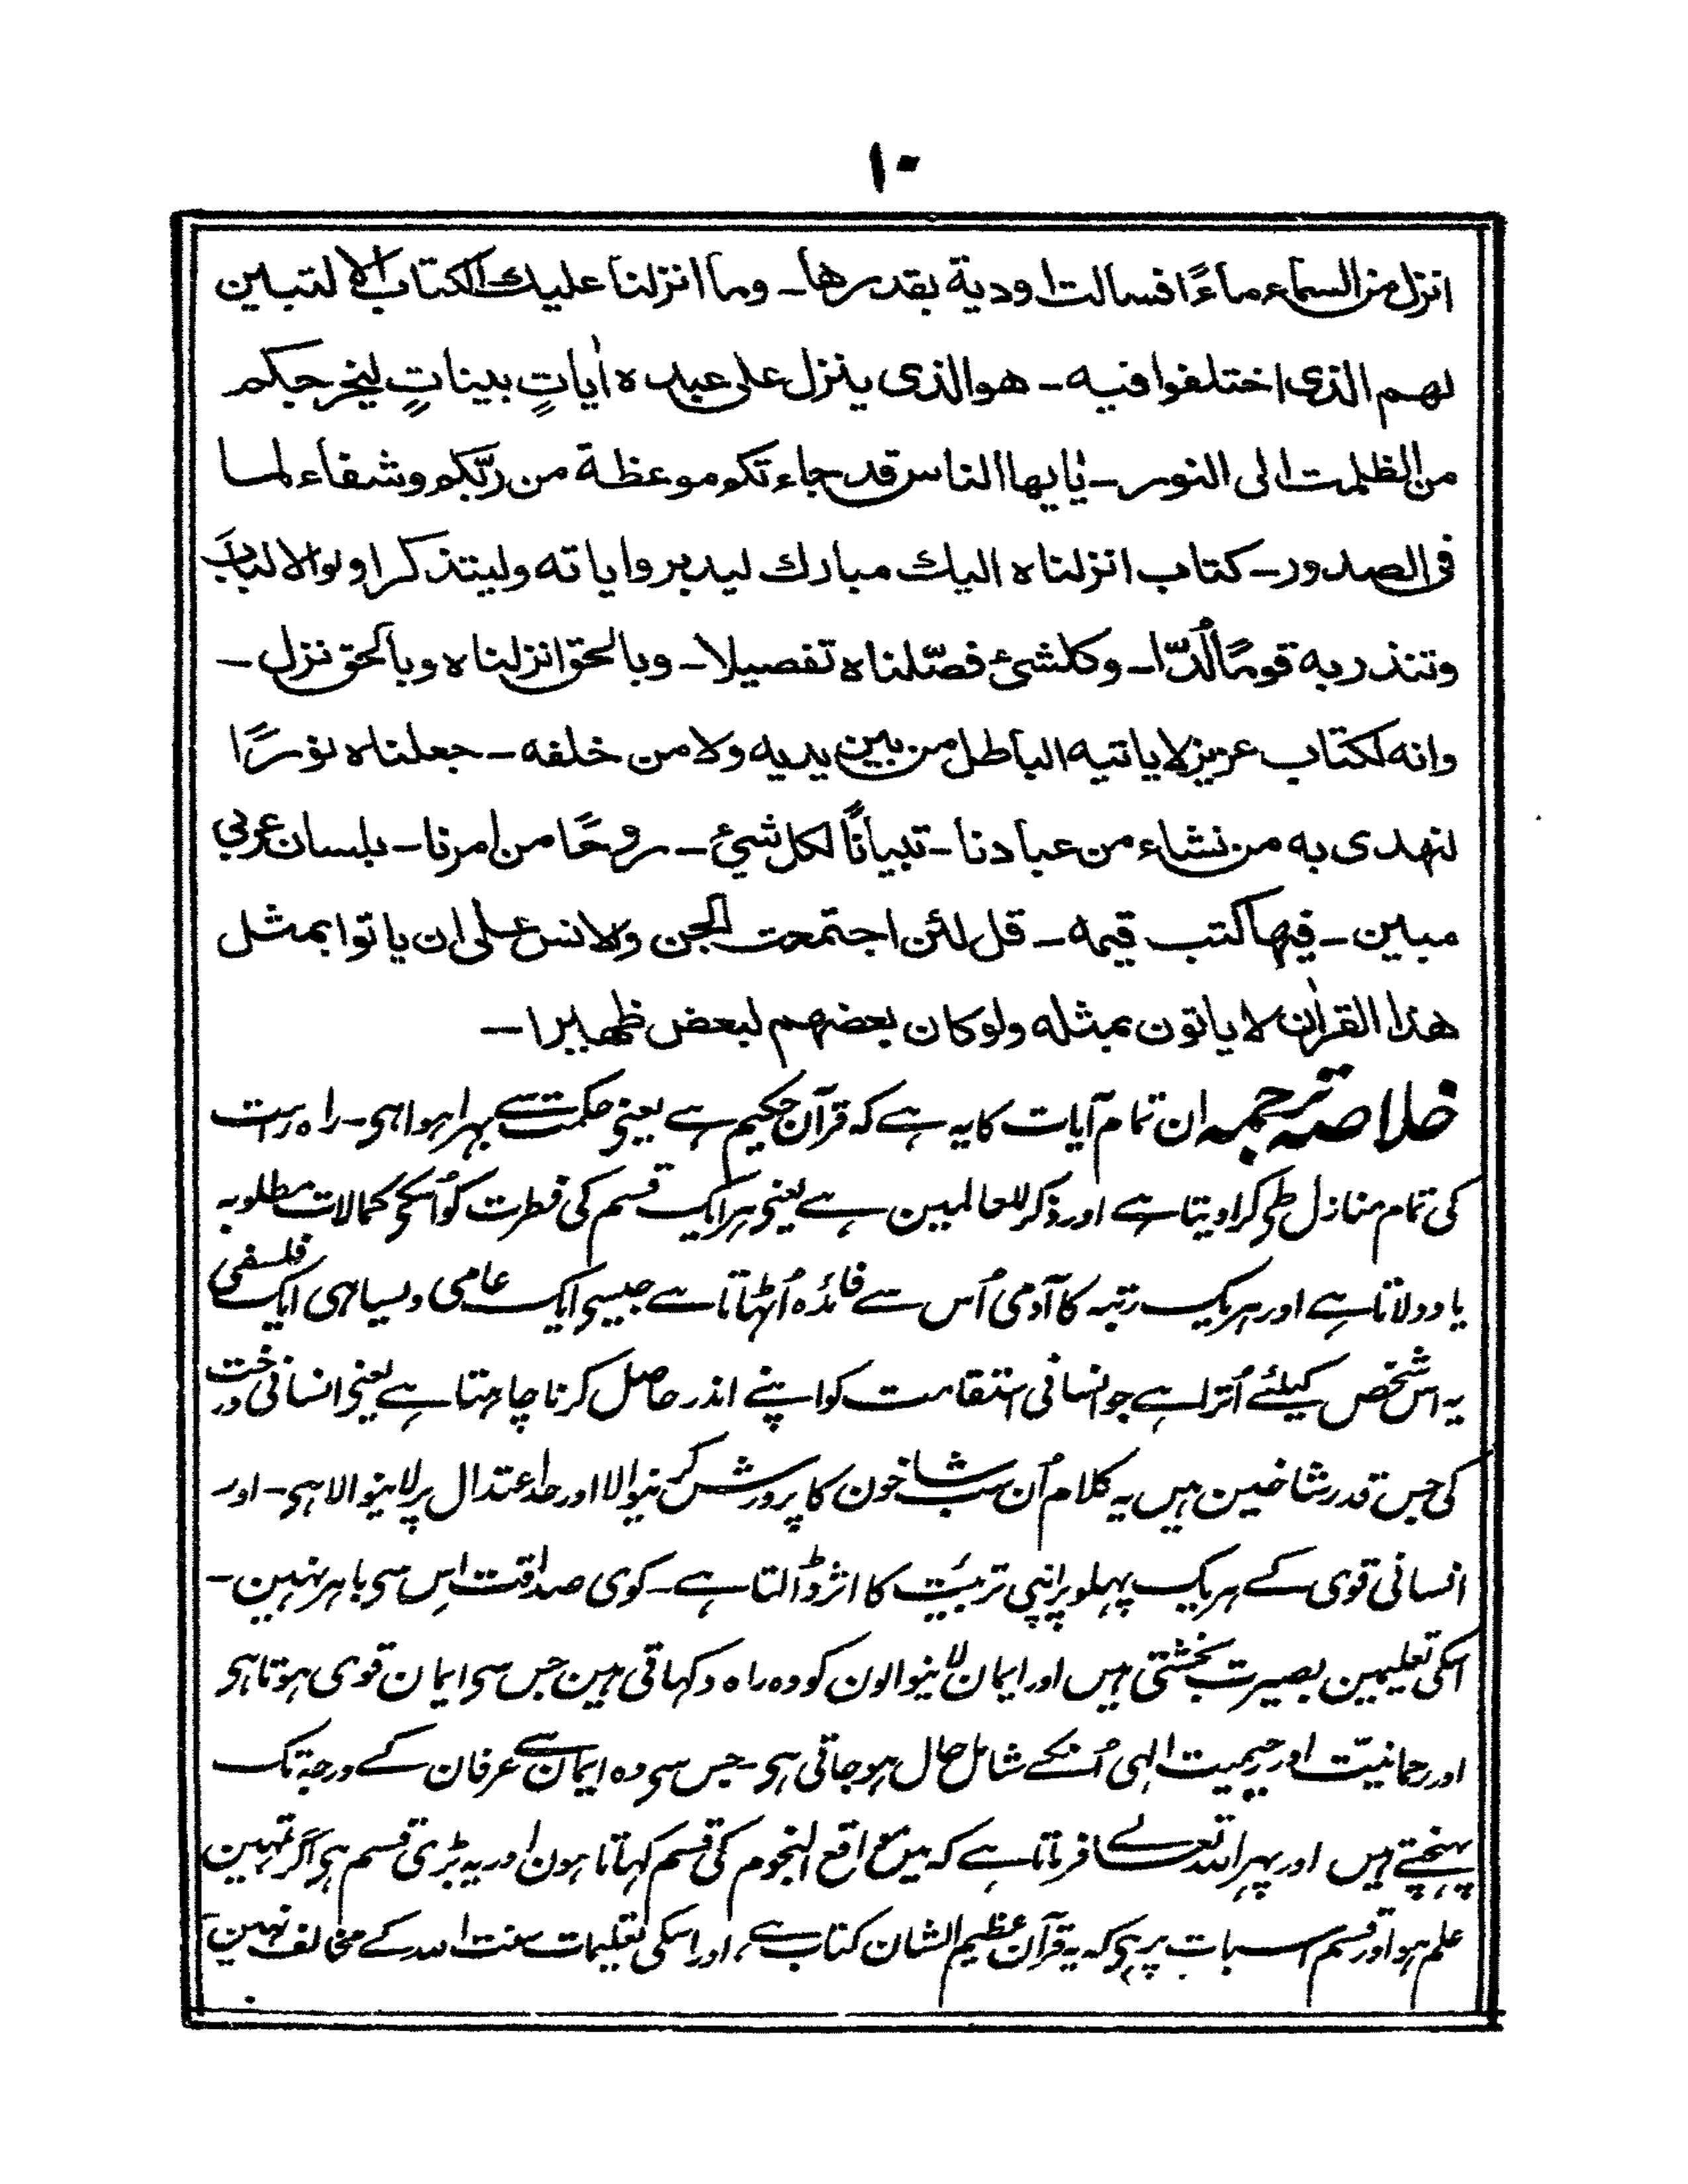 ۱۰
انزل من السماء ماءً فسالت اودية بقدرها۔ وما انزلنا عليك الكتاب الا لتبين
لهم الذى اختلفوا فيه۔ هو الذى ينزل على عبده اٰياتٍ بيناتٍ ليخرجكم
من الظلمت الى النور۔ يٰايها الناس قد جاءتكم موعظة من ربّكم وشفاء لما
فى الصدور۔ كتاب انزلناه اليك مبارك ليدبروا اياته وليتذكر اولوا الالباب
وتنذر به قومًا لُدّا۔ وكلشئ فصّلناه تفصيلا۔ وبالحق انزلناه وبالحق نزل۔
وانه لكتاب عزيز لا ياتيه الباطل من بين يديه ولا من خلفه۔ جعلناه نورًا
لنهدى به من نشاء من عبادنا۔ تبيانًا لكل شئ۔ روحًا من امرنا۔ بلسان عربي
مبين۔ فيها كتب قيمه۔ قل لئن اجتمعت الجن ولانس على ان ياتوا بمثل
هذا القراٰن لا ياتون بمثله ولو كان بعضهم لبعض ظهيرا۔
خلاصہ ترجمہ ان تمام آیات کا یہ ہے کہ قرآن حکیم ہے یعنی حکمت سے بہرا ہوا ہی۔ راہ راست
کی تمام منازل طی کرا دیتا ہے اور ذکر للعالمین ہے یعنی ہر ایک قسم کی فطرت کو اُسکی کمالات مطلوبہ
یاد دلاتا ہے اور ہریک رتبہ کا آدمی اُس سے فائدہ اُٹہاتا ہے جیسی ایک عامی ویسا ہی ایک فلسفی
یہ اس شخص کیلئے اُترا ہے جو انسانی استقامت کو اپنے اندر حاصل کرنا چاہتا ہے یعنی انسانی درخت
کی جس قدر شاخین ہیں یہ کلام اُن سب شاخون کا پرورش کرنیوالا اور حد اعتدال پر لانیوالا ہی۔ اور
انسانی قوی کے ہریک پہلو پر اپنی تربیت کا اثر ڈالتا ہے۔ کوی صداقت اِس سی باہر نہین۔
اسکی تعلیمین بصیرت بخشتی ہیں اور ایمان لانیوالون کو وہ راہ دکہاتی ہین جس سی ایمان قوی ہوتا ہی
اور رحمانیّت اور رحیمیت الٰہی اُنکے شامل حال ہو جاتی ہی۔ جس سی وہ ایمان سے عرفان کے درجہ تک
پہنچتے ہیں اور پہر اللہ تعالے فرماتا ہے کہ مین مواقع النجوم کی قسم کہاتا ہون اور یہ بڑی قسم ہی اگر تمہین
علم ہو اور قسم اسبات پر ہی کہ یہ قرآن عظیم الشان کتاب ہے، اور اسکی تعلیمات سنت اللہ کے مخالف نہین